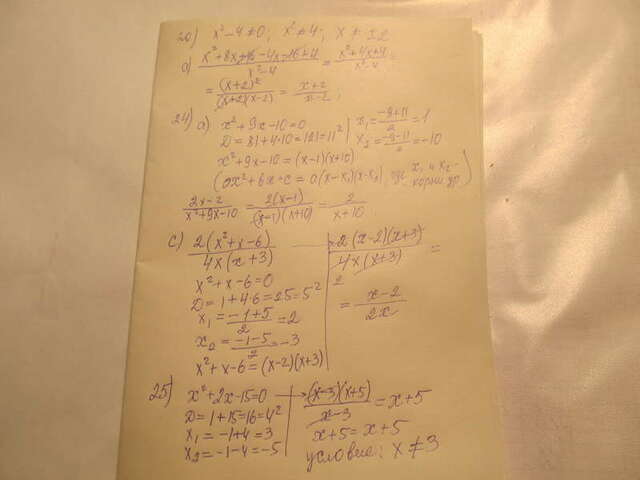 20) x²-4≠0; x²≠4; x≠±2
a) (x²+8x+16-4x-16+4)/(x²-4) = (x²+4x+4)/(x²-4) =
= (x+2)²/((x+2)(x-2)) = (x+2)/(x-2);
24) a) x²+9x-10=0 | x₁=(-9+11)/2=1
D=81+4·10=121=11² | x₂=(-9-11)/2=-10
x²+9x-10=(x-1)(x+10)
(ax²+bx+c=a(x-x₁)(x-x₂), где x₁ и x₂-корни ур)
(2x-2)/(x²+9x-10) = 2(x-1)/((x-1)(x+10)) = 2/(x+10)
c) 2(x²+x-6)/(4x(x+3))
x²+x-6=0
D=1+4·6=25=5²
x₁=(-1+5)/2=2
x₂=(-1-5)/2=-3
x²+x-6=(x-2)(x+3)
2(x-2)(x+3)/(4x(x+3)) =
2
= (x-2)/2x
25) x²+2x-15=0
D=1+15=16=4²
x₁=-1+4=3
x₂=-1-4=-5
→ (x-3)(x+5)/(x-3) = x+5
x+5=x+5
условие: x≠3